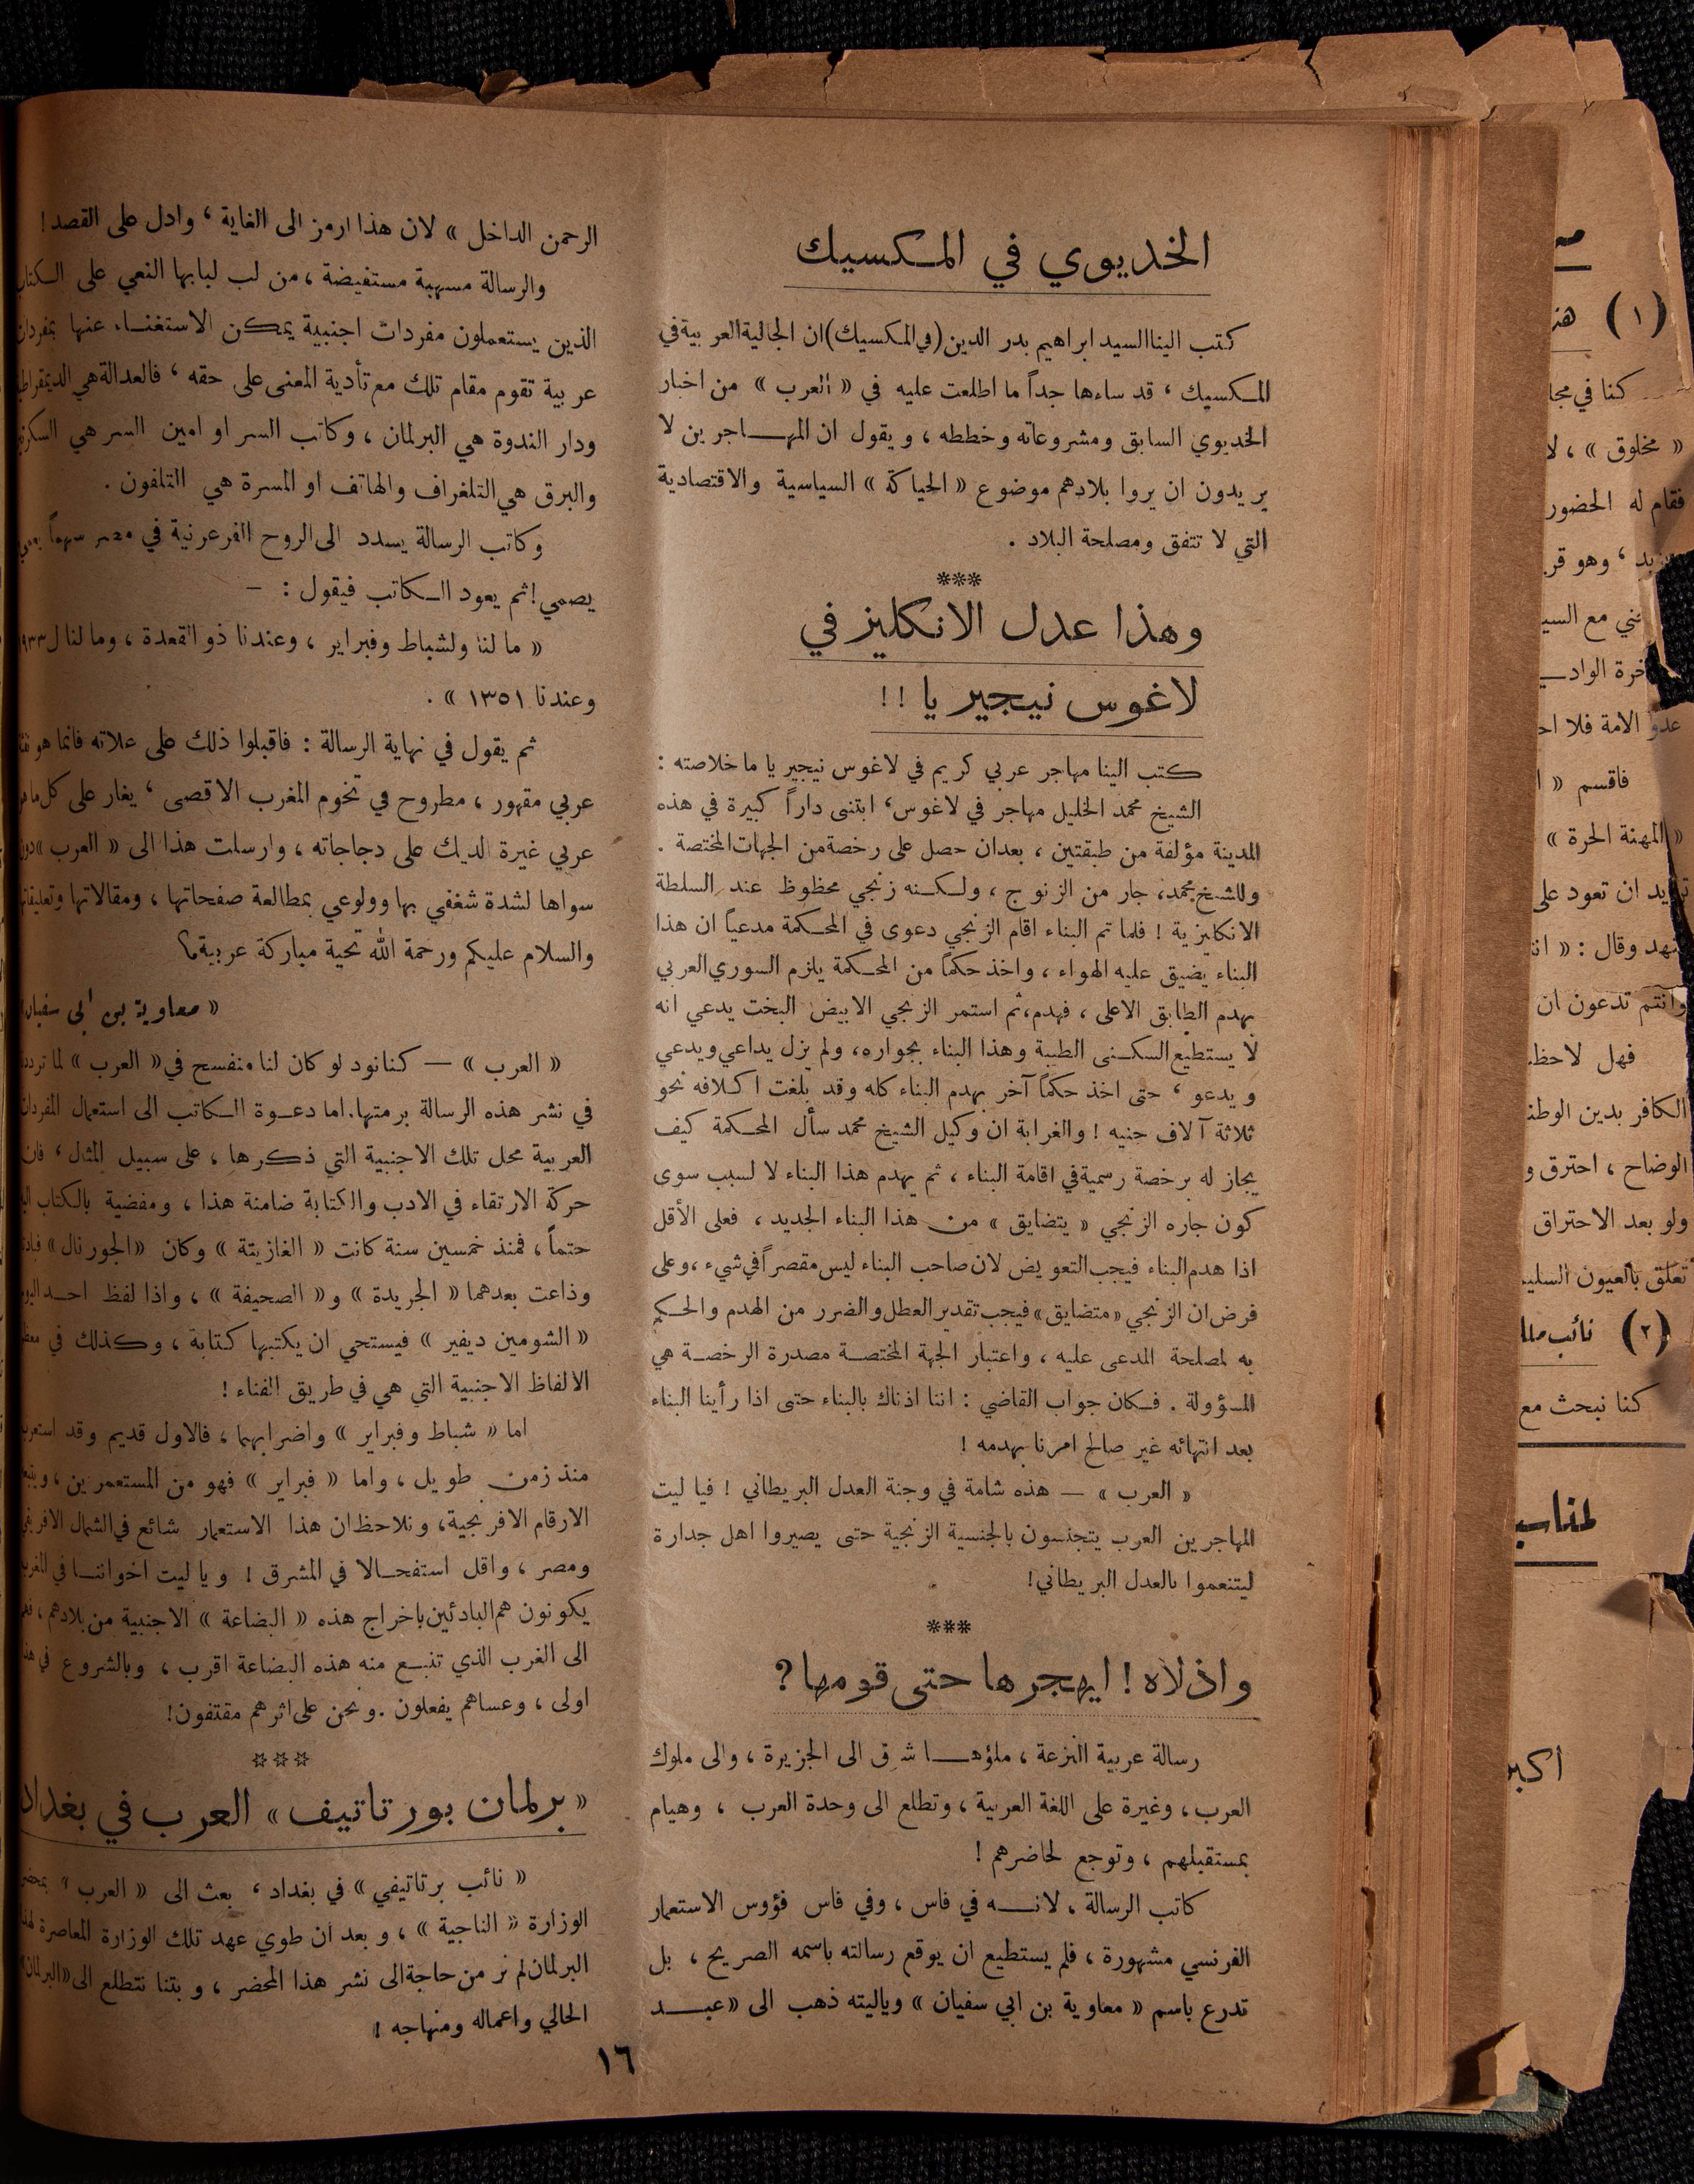 الخديوي في المكسيك
كتب الينا السيد ابراهيم بدر الدين (في المكسيك) ان الجالية العربية في
المكسيك ، قد ساءها جداً ما اطلعت عليه في « العرب » من اخبار
الخديوي السابق ومشروعاته وخططه ، ويقول ان المهاجرين لا
يريدون ان يروا بلادهم موضوع « الحياكة » السياسية والاقتصادية
التي لا تتفق ومصلحة البلاد .
***
وهذا عدل الانكليز في
لاغوس نيجيريا !!
كتب الينا مهاجر عربي كريم في لاغوس نيجيريا ما خلاصته :
الشيخ محمد الخليل مهاجر في لاغوس، ابتنى داراً كبيرة في هذه
المدينة مؤلفة من طبقتين ، بعد ان حصل على رخصة من الجهات المختصة .
وللشيخ محمد، جار من الزنوج ، ولكنه زنجي محظوظ عند السلطة
الانكليزية ! فلما تم البناء اقام الزنجي دعوى في المحكمة مدعياً ان هذا
البناء يضيق عليه الهواء ، واخذ حكماً من المحكمة يلزم السوري العربي
بهدم الطابق الاعلى ، فهدم، ثم استمر الزنجي الابيض البخت يدعي انه
لا يستطيع السكنى الطيبة وهذا البناء بجواره، ولم يزل يداعي ويدعي
ويدعو ، حتى اخذ حكماً آخر بهدم البناء كله وقد بلغت اكلافه نحو
ثلاثة آلاف جنيه ! والغرابة ان وكيل الشيخ محمد سأل المحكمة كيف
يجاز له برخصة رسمية في اقامة البناء ، ثم يهدم هذا البناء لا لسبب سوى
كون جاره الزنجي « يتضايق » من هذا البناء الجديد ، فعلى الأقل
اذا هدم البناء فيجب التعويض لان صاحب البناء ليس مقصراً في شيء ، وعلى
فرض ان الزنجي «متضايق» فيجب تقدير العطل والضرر من الهدم والحكم
به لمصلحة المدعى عليه ، واعتبار الجهة المختصة مصدرة الرخصة هي
المسؤولة . فكان جواب القاضي : اننا اذناك بالبناء حتى اذا رأينا البناء
بعد انتهائه غير صالح امرنا بهدمه !
« العرب » — هذه شامة في وجنة العدل البريطاني ! فيا ليت
المهاجرين العرب يتجنسون بالجنسية الزنجية حتى يصيروا اهل جدارة
ليتنعموا بالعدل البريطاني!
***
واذلاه ! ايهجرها حتى قومها ?
رسالة عربية النزعة ، ملؤها شوق الى الجزيرة ، والى ملوك
العرب ، وغيرة على اللغة العربية ، وتطلع الى وحدة العرب ، وهيام
بمستقبلهم ، وتوجع لحاضرهم !
كاتب الرسالة ، لانه في فاس ، وفي فاس فؤوس الاستعمار
الفرنسي مشهورة ، فلم يستطيع ان يوقع رسالته باسمه الصريح ، بل
تدرع باسم « معاوية بن ابي سفيان » وياليته ذهب الى « عبد
الرحمن الداخل » لان هذا ارمز الى الغاية ، وادل على القصد !
والرسالة مسهبة مستفيضة ، من لب لبابها النعي على الكتاب
الذين يستعملون مفردات اجنبية يمكن الاستغناء عنها بمفردات
عربية تقوم مقام تلك مع تأدية المعنى على حقه ، فالعدالة هي
ودار الندوة هي البرلمان ، وكاتب السر او امين السر هي
والبرق هي التلغراف والهاتف او المسرة هي التلفون .
وكاتب الرسالة يسدد الى الروح الفرعونية في مصر سهماً
يصمي ! ثم يعود الكاتب فيقول : —
« ما لنا ولشباط وفبراير ، وعندنا ذو القعدة ، وما لنا ل ١٩٣٣
وعندنا ١٣٥١ » .
ثم يقول في نهاية الرسالة : فاقبلوا ذلك على علاته فانما هو
عربي مقهور ، مطروح في تخوم المغرب الاقصى ، يغار على كل ما هو
عربي غيرة الديك على دجاجاته ، وارسلت هذا الى « العرب » دون
سواها لشدة شغفي بها وولوعي بمطالعة صفحاتها ، ومقالاتها وتعليقاتها
والسلام عليكم ورحمة الله تحية مباركة عربية م؟
« معاوية بن ابي سفيان
« العرب » — كنا نود لو كان لنا منفسح في « العرب » لما
في نشر هذه الرسالة برمتها. اما دعوة الكاتب الى استعمال المفردات
العربية محل تلك الاجنبية التي ذكرها ، على سبيل المثال ، فان
حركة الارتقاء في الادب والكتابة ضامنة هذا ، ومفضية بالكتاب
حتماً ، فمنذ خمسين سنة كانت « الغازيتة » وكان «الجورنال»
وذاعت بعدهما « الجريدة » و « الصحيفة » ، واذا لفظ احد اليوم
« الشومين ديفير » فيستحي ان يكتبها كتابة ، وكذلك في
الالفاظ الاجنبية التي هي في طريق الفناء !
اما « شباط وفبراير » واضرابهما ، فالاول قديم وقد استعرب
منذ زمن طويل ، واما « فبراير » فهو من المستعمرين ،
الارقام الافرنجية، ونلاحظ ان هذا الاستعمار شائع في الشمال الافريقي
ومصر ، واقل استفحالا في المشرق ! ويا ليت اخواننا في المغرب
يكونون هم البادئين باخراج هذه « البضاعة » الاجنبية من بلادهم ،
الى الغرب الذي تنبع منه هذه البضاعة اقرب ، وبالشروع في هذا
اولى ، وعساهم يفعلون . ونحن على اثرهم مقتفون!
***
« برلمان بورتاتيف » العرب في بغداد
« نائب برتاتيفي » في بغداد ، بعث الى « العرب » بمحضر
الوزارة « الناجية » ، وبعد ان طوي عهد تلك الوزارة المعاصرة لهذا
البرلمان لم نر من حاجة الى نشر هذا المحضر ، وبتنا نتطلع الى «البرلمان»
الحالي واعماله ومنهاجه !
١٦
(١)
كنا في
« مخلوق » ، لا
فقام له الحضور
، وهو
مع
عدو الامة فلا
فاقسم «
« المهنة الحرة »
ان تعود على
وقال : «
وانتم تدعون ان
فهل
الكافر بدين
الوضاح ، احترق و
ولو بعد الاحتراق
تعلق بالعيون
(٢) نائب
كنا نبحث مع